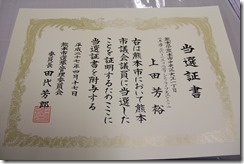 当選証書
上田芳裕
右は熊本市において熊本
市議会議員に当選した
ことを証明するためここに
当選証書を附与する
平成二十七年四月二十七日
熊本市選挙管理委員会
委員長 田代芳郎